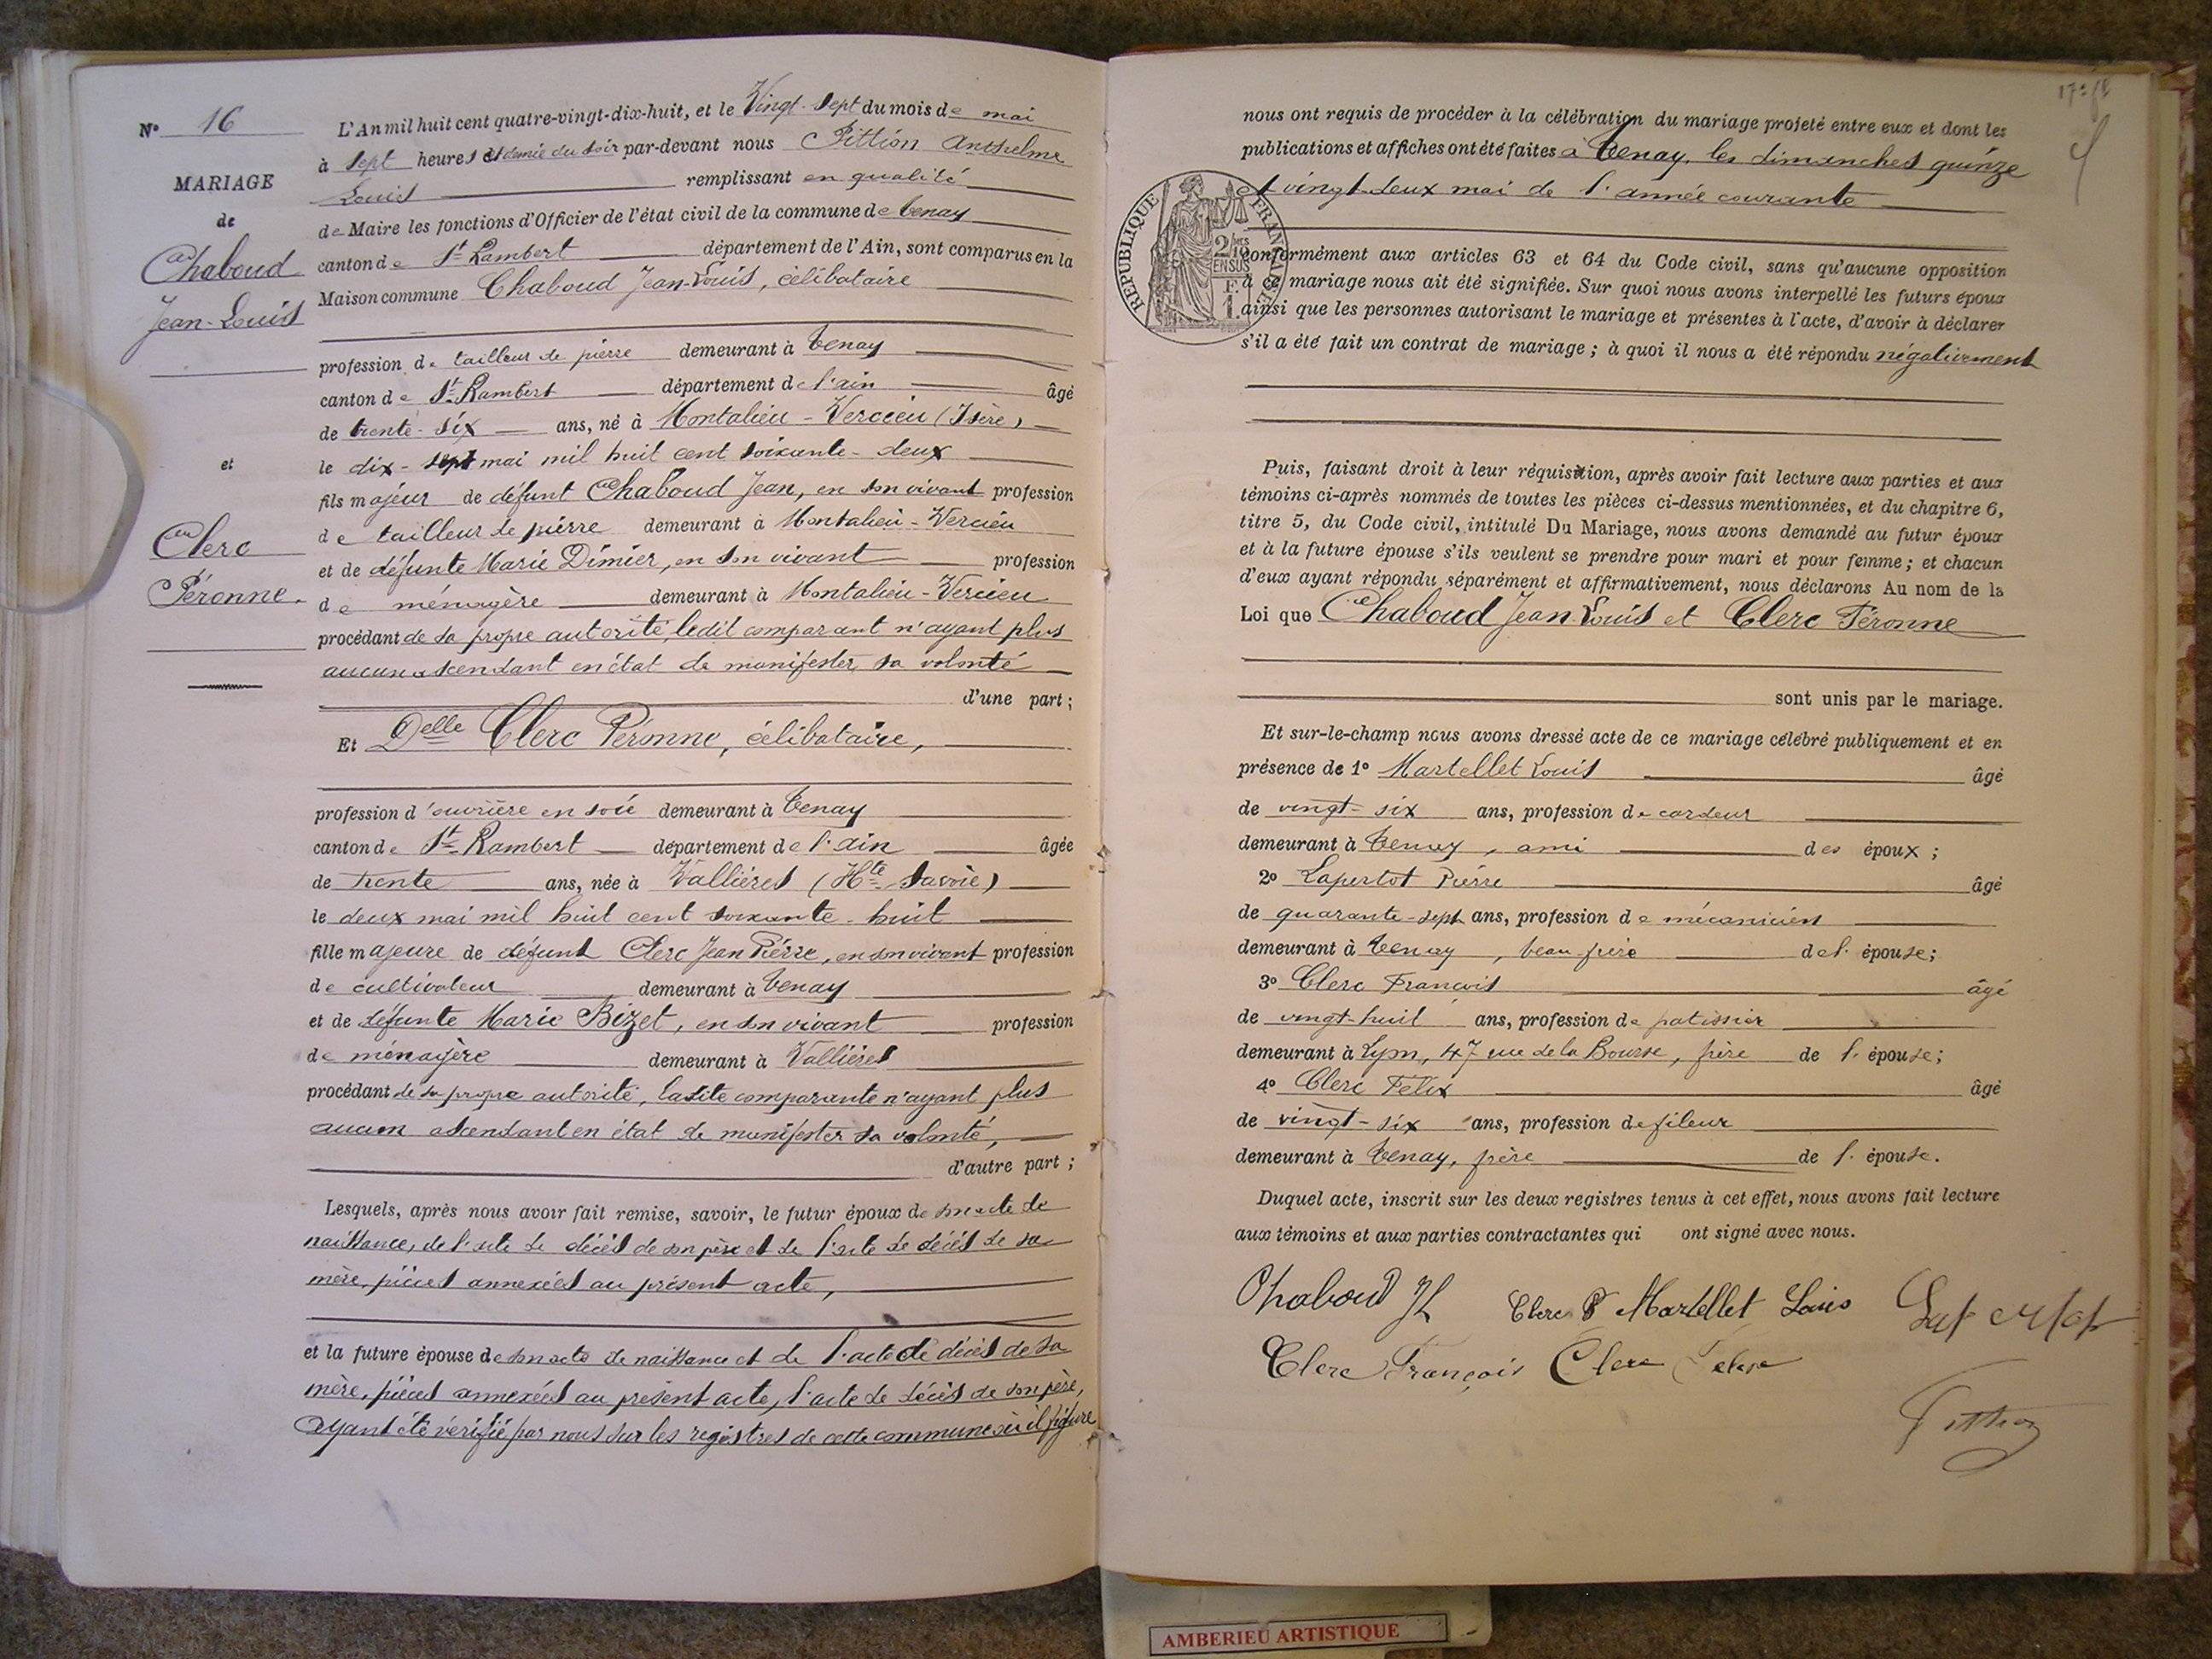 N° 16
MARIAGE
de
Chaboud
Jean-Louis
et
Clerc
Péronne.
L'An mil huit cent quatre-vingt-dix-huit, et le Vingt-sept du mois de mai
à sept heures et demie du soir par-devant nous Pittion Anthelme
Louis remplissant en qualité
de Maire les fonctions d'Officier de l'état civil de la commune de Tenay
canton de St Rambert département de l'Ain, sont comparus en la
Maison commune Chaboud Jean-Louis, célibataire
profession de tailleur de pierre demeurant à Tenay
canton de St Rambert département de l'ain âgé
de trente-six ans, né à Montalieu-Vercieu (Isère)
le dix-sept mai mil huit cent soixante-deux
fils majeur de défunt Chaboud Jean, en son vivant profession
de tailleur de pierre demeurant à Montalieu-Vercieu
et de défunte Marie Dimier, en son vivant profession
de ménagère demeurant à Montalieu-Vercieu
procédant de sa propre autorité, ledit comparant n'ayant plus
aucun ascendant en état de manifester sa volonté
d'une part;
Et Delle Clerc Péronne, célibataire,
profession d'ouvrière en soie demeurant à Tenay
canton de St Rambert département de l'ain âgée
de trente ans, née à Vallières (Hte Savoie)
le deux mai mil huit cent soixante-huit
fille majeure de défunt Clerc Jean Pierre, en son vivant profession
de cultivateur demeurant à Tenay
et de défunte Marie Bizet, en son vivant profession
de ménagère demeurant à Vallières
procédant de sa propre autorité, ladite comparante n'ayant plus
aucun ascendant en état de manifester sa volonté,
d'autre part;
Lesquels, après nous avoir fait remise, savoir, le futur époux de son acte de
naissance, de l'acte de décès de son père et de l'acte de décès de sa
mère, pièces annexées au présent acte,
et la future épouse de son acte de naissance et de l'acte de décès de sa
mère, pièces annexées au présent acte, l'acte de décès de son père,
ayant été vérifié par nous sur les registres de cette commune où il figure
nous ont requis de procéder à la célébration du mariage projeté entre eux et dont les
publications et affiches ont été faites à Tenay, les dimanches quinze
et vingt-deux mai de l'année courante
REPUBLIQUE FRANCAISE
2/10mes
EN SUS
F. 1.
conformément aux articles 63 et 64 du Code civil, sans qu'aucune opposition
à ce mariage nous ait été signifiée. Sur quoi nous avons interpellé les futurs époux
ainsi que les personnes autorisant le mariage et présentes à l'acte, d'avoir à déclarer
s'il a été fait un contrat de mariage; à quoi il nous a été répondu négativement
Puis, faisant droit à leur réquisition, après avoir fait lecture aux parties et aux
témoins ci-après nommés de toutes les pièces ci-dessus mentionnées, et du chapitre 6,
titre 5, du Code civil, intitulé Du Mariage, nous avons demandé au futur époux
et à la future épouse s'ils veulent se prendre pour mari et pour femme; et chacun
d'eux ayant répondu séparément et affirmativement, nous déclarons Au nom de la
Loi que Chaboud Jean-Louis et Clerc Péronne
sont unis par le mariage.
Et sur-le-champ nous avons dressé acte de ce mariage célébré publiquement et en
présence de 1° Martellet Louis âgé
de vingt-six ans, profession de cardeur
demeurant à Tenay, ami des époux;
2° Lapertot Pierre âgé
de quarante-sept ans, profession de mécanicien
demeurant à Tenay, beau-frère de l'épouse;
3° Clerc François âgé
de vingt-huit ans, profession de patissier
demeurant à Lyon, 47 rue de la Bourse, frère de l'épouse;
4° Clerc Félix âgé
de vingt-six ans, profession de fileur
demeurant à Tenay, frère de l'épouse.
Duquel acte, inscrit sur les deux registres tenus à cet effet, nous avons fait lecture
aux témoins et aux parties contractantes qui ont signé avec nous.
Chaboud JL Clerc P Martellet Louis Lapertot
Clerc François Clerc Felix
Pittion
AMBERIEU ARTISTIQUE